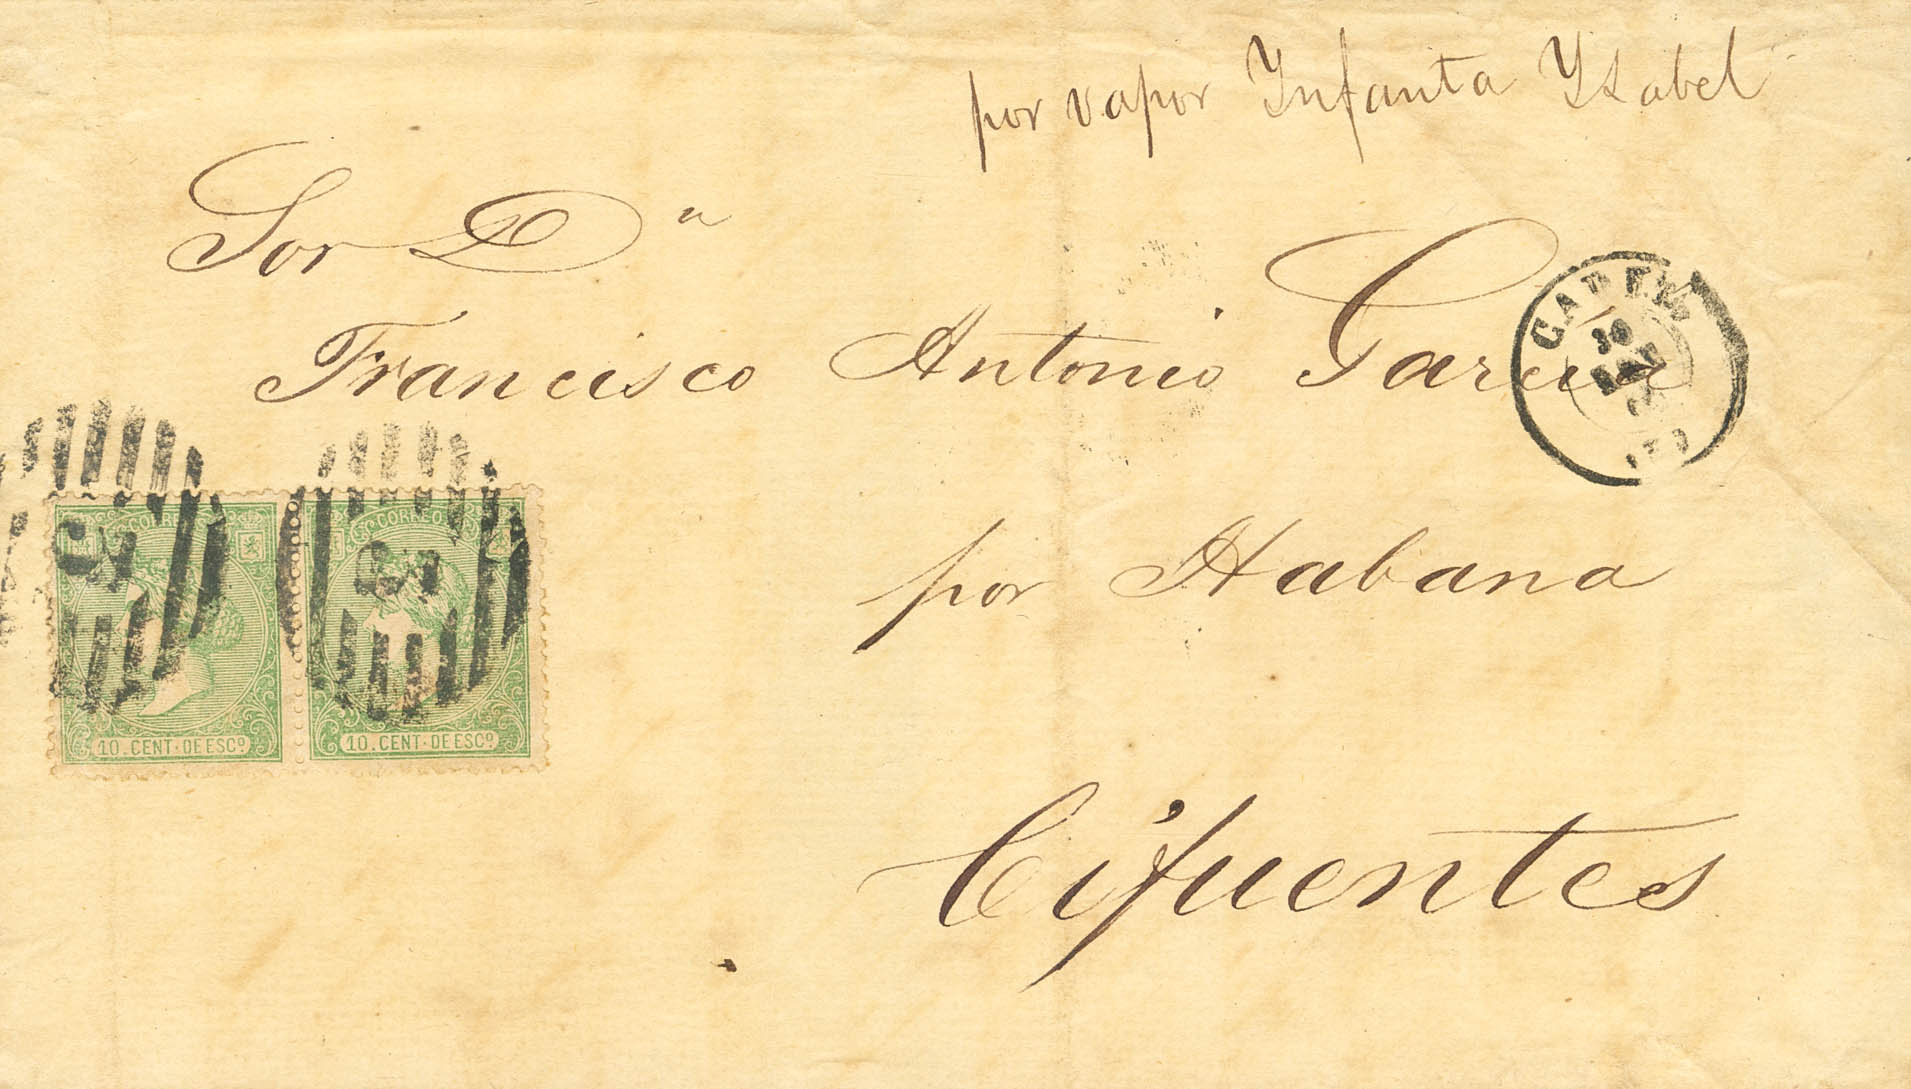 por vapor Ynfanta Ysabel
Sor Dn
Francisco Antonio Garcia
CADIZ
10
por Habana
CORREOS
CORREOS
10. CENT. DE ESCO
10. CENT. DE ESCO
Cifuentes